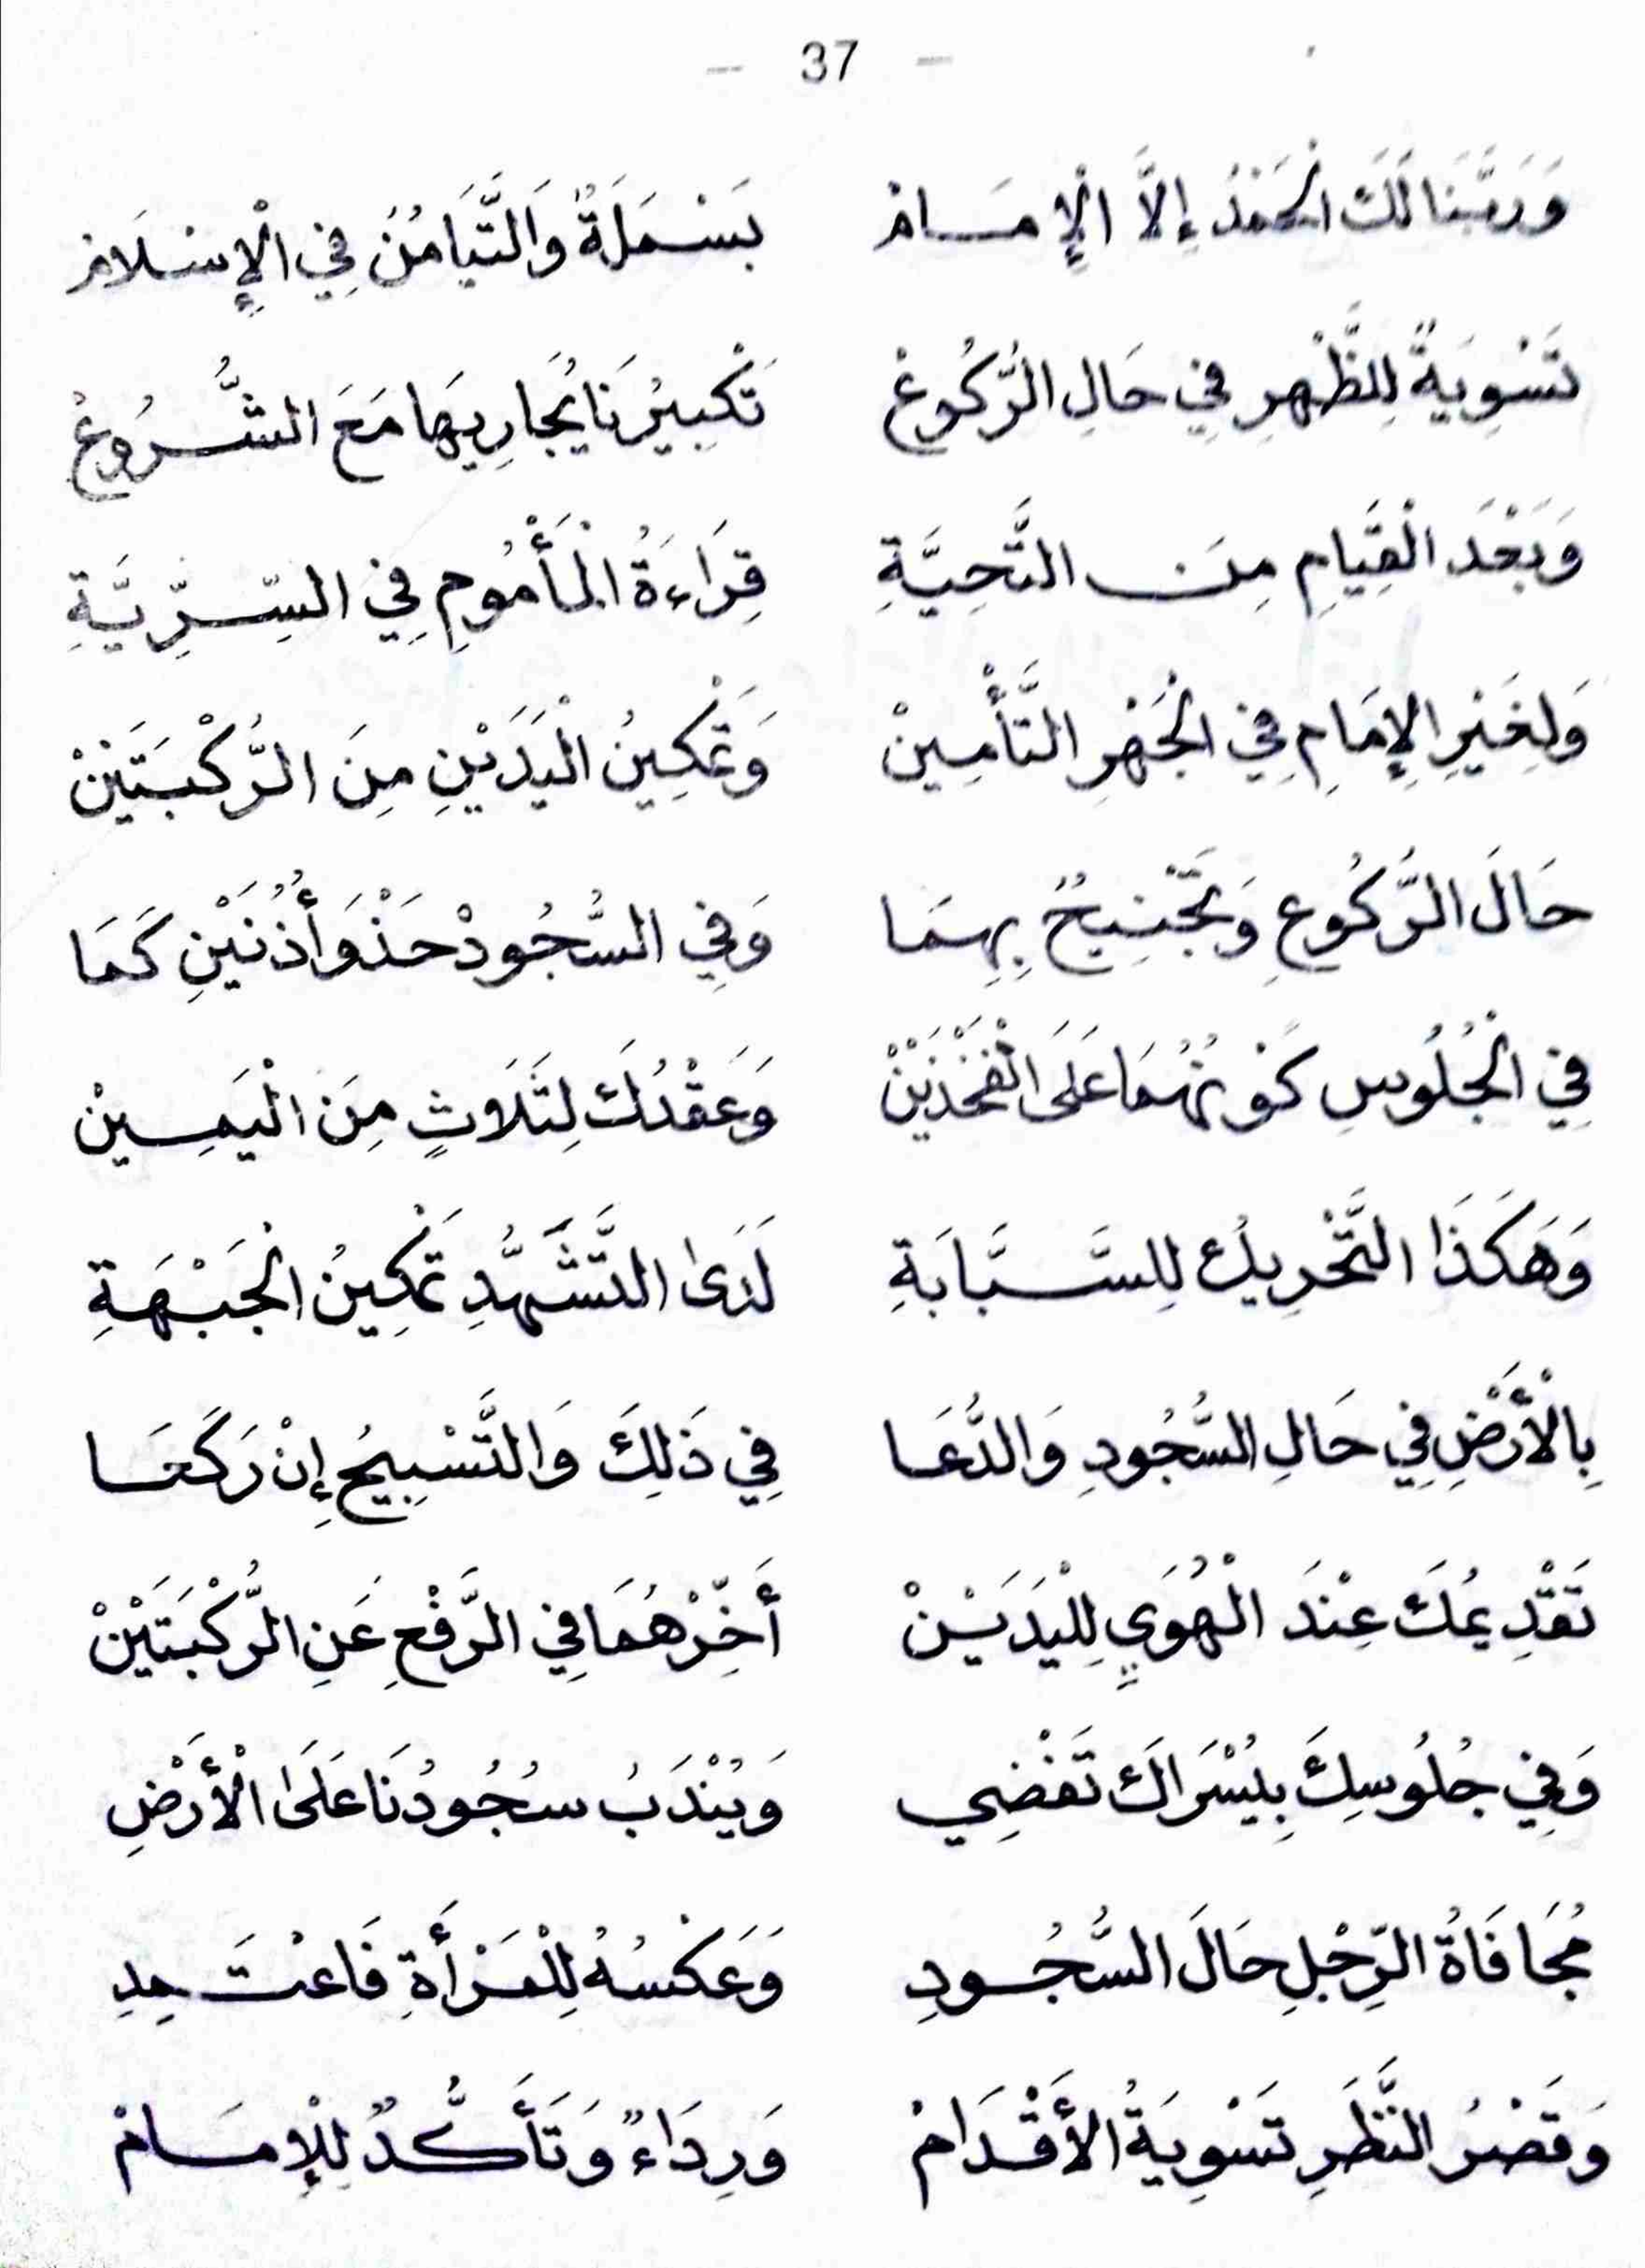 - 37 -
وَرَبَّنَا لَكَ الْحَمْدُ إِلَّا الْإِمَامْ بَسْمَلَةٌ وَالتَّيَامُنُ فِي الْإِسْلَامْ
تَسْوِيَةٌ لِلظَّهْرِ فِي حَالِ الرُّكُوعْ تَكْبِيرُنَا يُجَارِيهَا مَعَ الشُّرُوعْ
وَبَعْدَ الْقِيَامِ مِنَ التَّحِيَّةِ قِرَاءَةُ الْمَأْمُومِ فِي السِّرِّيَّةِ
وَلِغَيْرِ الْإِمَامِ فِي الْجَهْرِ التَّأْمِينْ وَتَمْكِينُ الْيَدَيْنِ مِنَ الرُّكْبَتَيْنْ
حَالَ الرُّكُوعِ وَتَجْنِيحٌ بِهِمَا وَفِي السُّجُودْ حَذْوَ أُذُنَيْنِ كَمَا
فِي الْجُلُوسِ كَوْنُهُمَا عَلَى الْفَخْذَيْنْ وَعَقْدُكَ لِثَلَاثٍ مِنَ الْيَمِينْ
وَهَكَذَا التَّحْرِيكُ لِلسَّبَّابَةِ لَدَى التَّشَهُّدِ تَمْكِينُ الْجَبْهَةِ
بِالْأَرْضِ فِي حَالِ السُّجُودِ وَالدُّعَا فِي ذَلِكَ وَالتَّسْبِيحُ إِنْ رَكَعَا
تَقْدِيمُكَ عِنْدَ الْهُوَيِّ لِلْيَدَيْنْ أَخِّرْهُمَا فِي الرَّفْعِ عَنِ الرُّكْبَتَيْنْ
وَفِي جُلُوسِكَ بِيُسْرَاكَ تَفْضِي وَيُنْدَبُ سُجُودُنَا عَلَى الْأَرْضِ
مُجَافَاةُ الرِّجْلِ حَالَ السُّجُودِ وَعَكْسُهُ لِلْمَرْأَةِ فَاعْتَمِدِ
وَقَصْرُ النَّظَرِ تَسْوِيَةُ الْأَقْدَامْ وَرِدَاءٌ وَتَأَكُّدٌ لِلْإِمَامْ